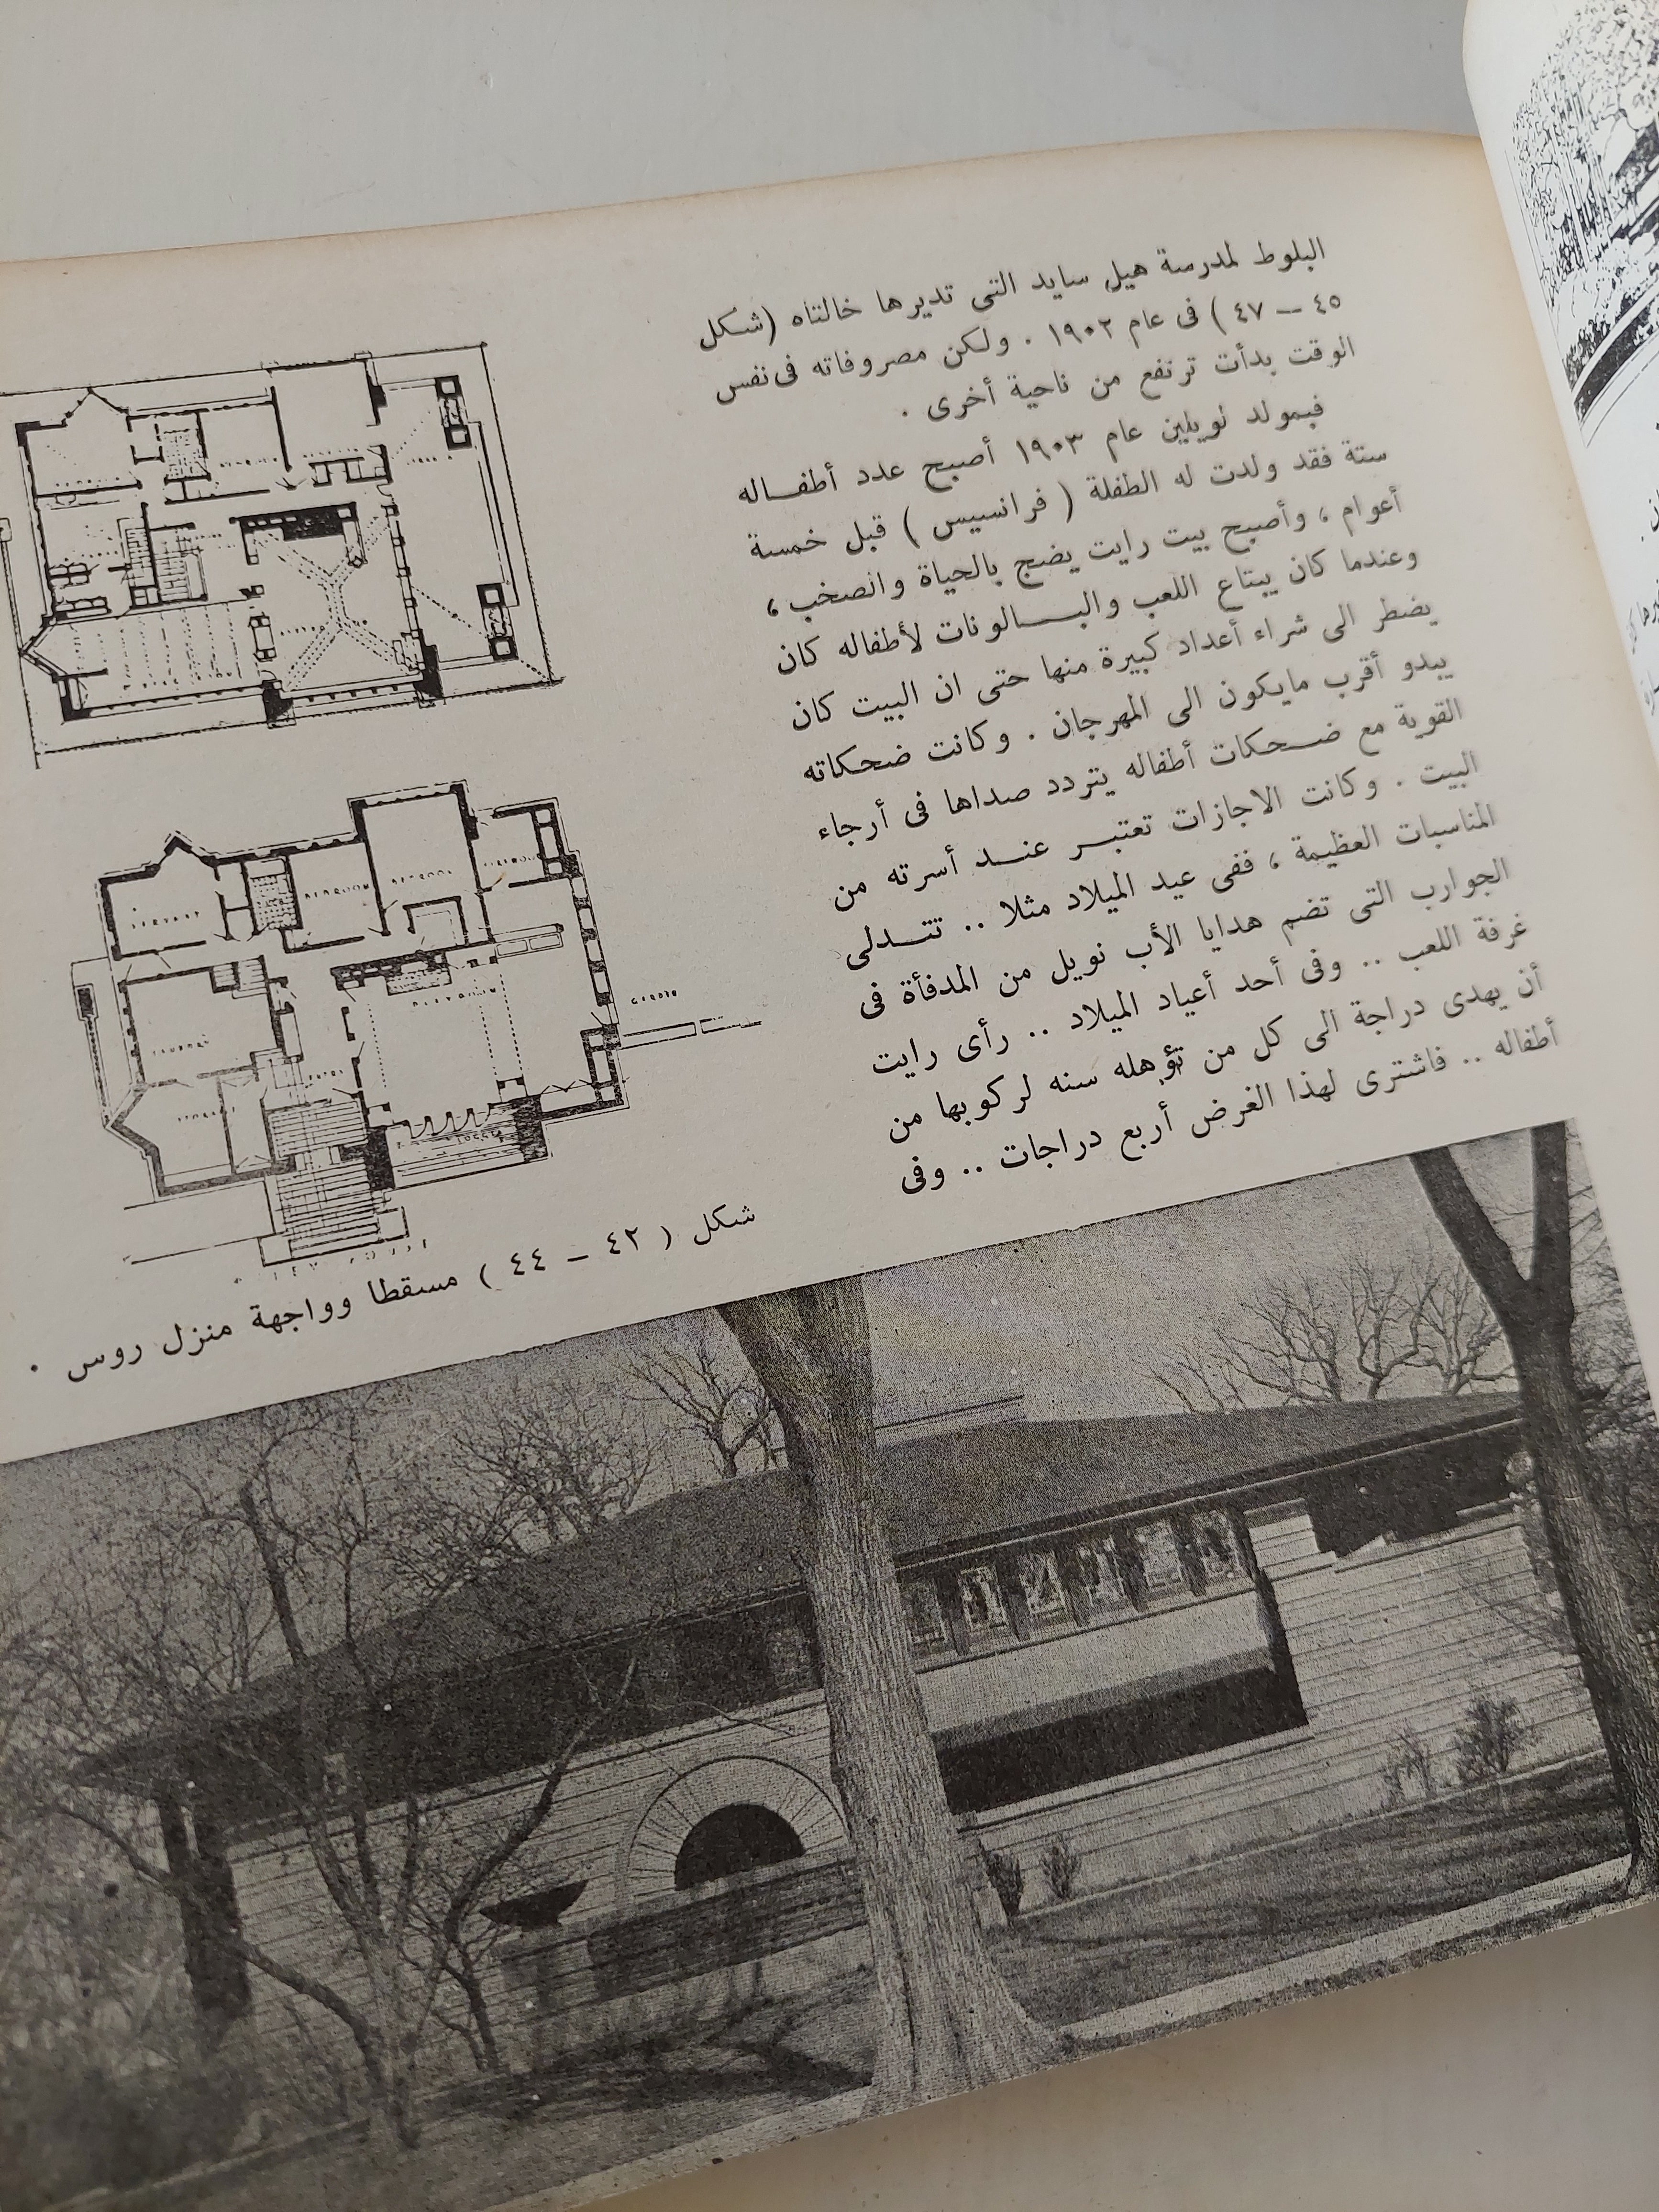 البلوط لمدرسة هيل سايد التى تديرها خالتاه (شكل
٤٥ — ٤٧ ) فى عام ١٩٠٢ . ولكن مصروفاته فى نفس
الوقت بدأت ترتفع من ناحية أخرى .
فبمولد لويلين عام ١٩٠٣ أصبح عدد أطفـاله
ستة فقد ولدت له الطفلة ( فرانسيس ) قبل خمسة
أعوام ، وأصبح بيت رايت يضج بالحياة والصخب ،
وعندما كان يبتاع اللعب والبـــالونات لأطفاله كان
يضطر الى شراء أعداد كبيرة منها حتى ان البيت كان
يبدو أقرب مايكون الى المهرجان . وكانت ضحكاته
القوية مع ضـحكات أطفاله يتردد صداها فى أرجاء
البيت . وكانت الاجازات تعتبـر عنـد أسرته من
المناسبات العظيمة ، ففى عيد الميلاد مثلا .. تتـدلى
الجوارب التى تضم هدايا الأب نويل من المدفأة فى
غرفة اللعب .. وفى أحد أعياد الميلاد .. رأى رايت
أن يهدى دراجة الى كل من تؤهله سنه لركوبها من
أطفاله .. فاشترى لهذا الغرض أربع دراجات .. وفى
BEDROOM
PLAYROOM
GARDEN
شكل ( ٤٢ — ٤٤ ) مسقطا وواجهة منزل روس .